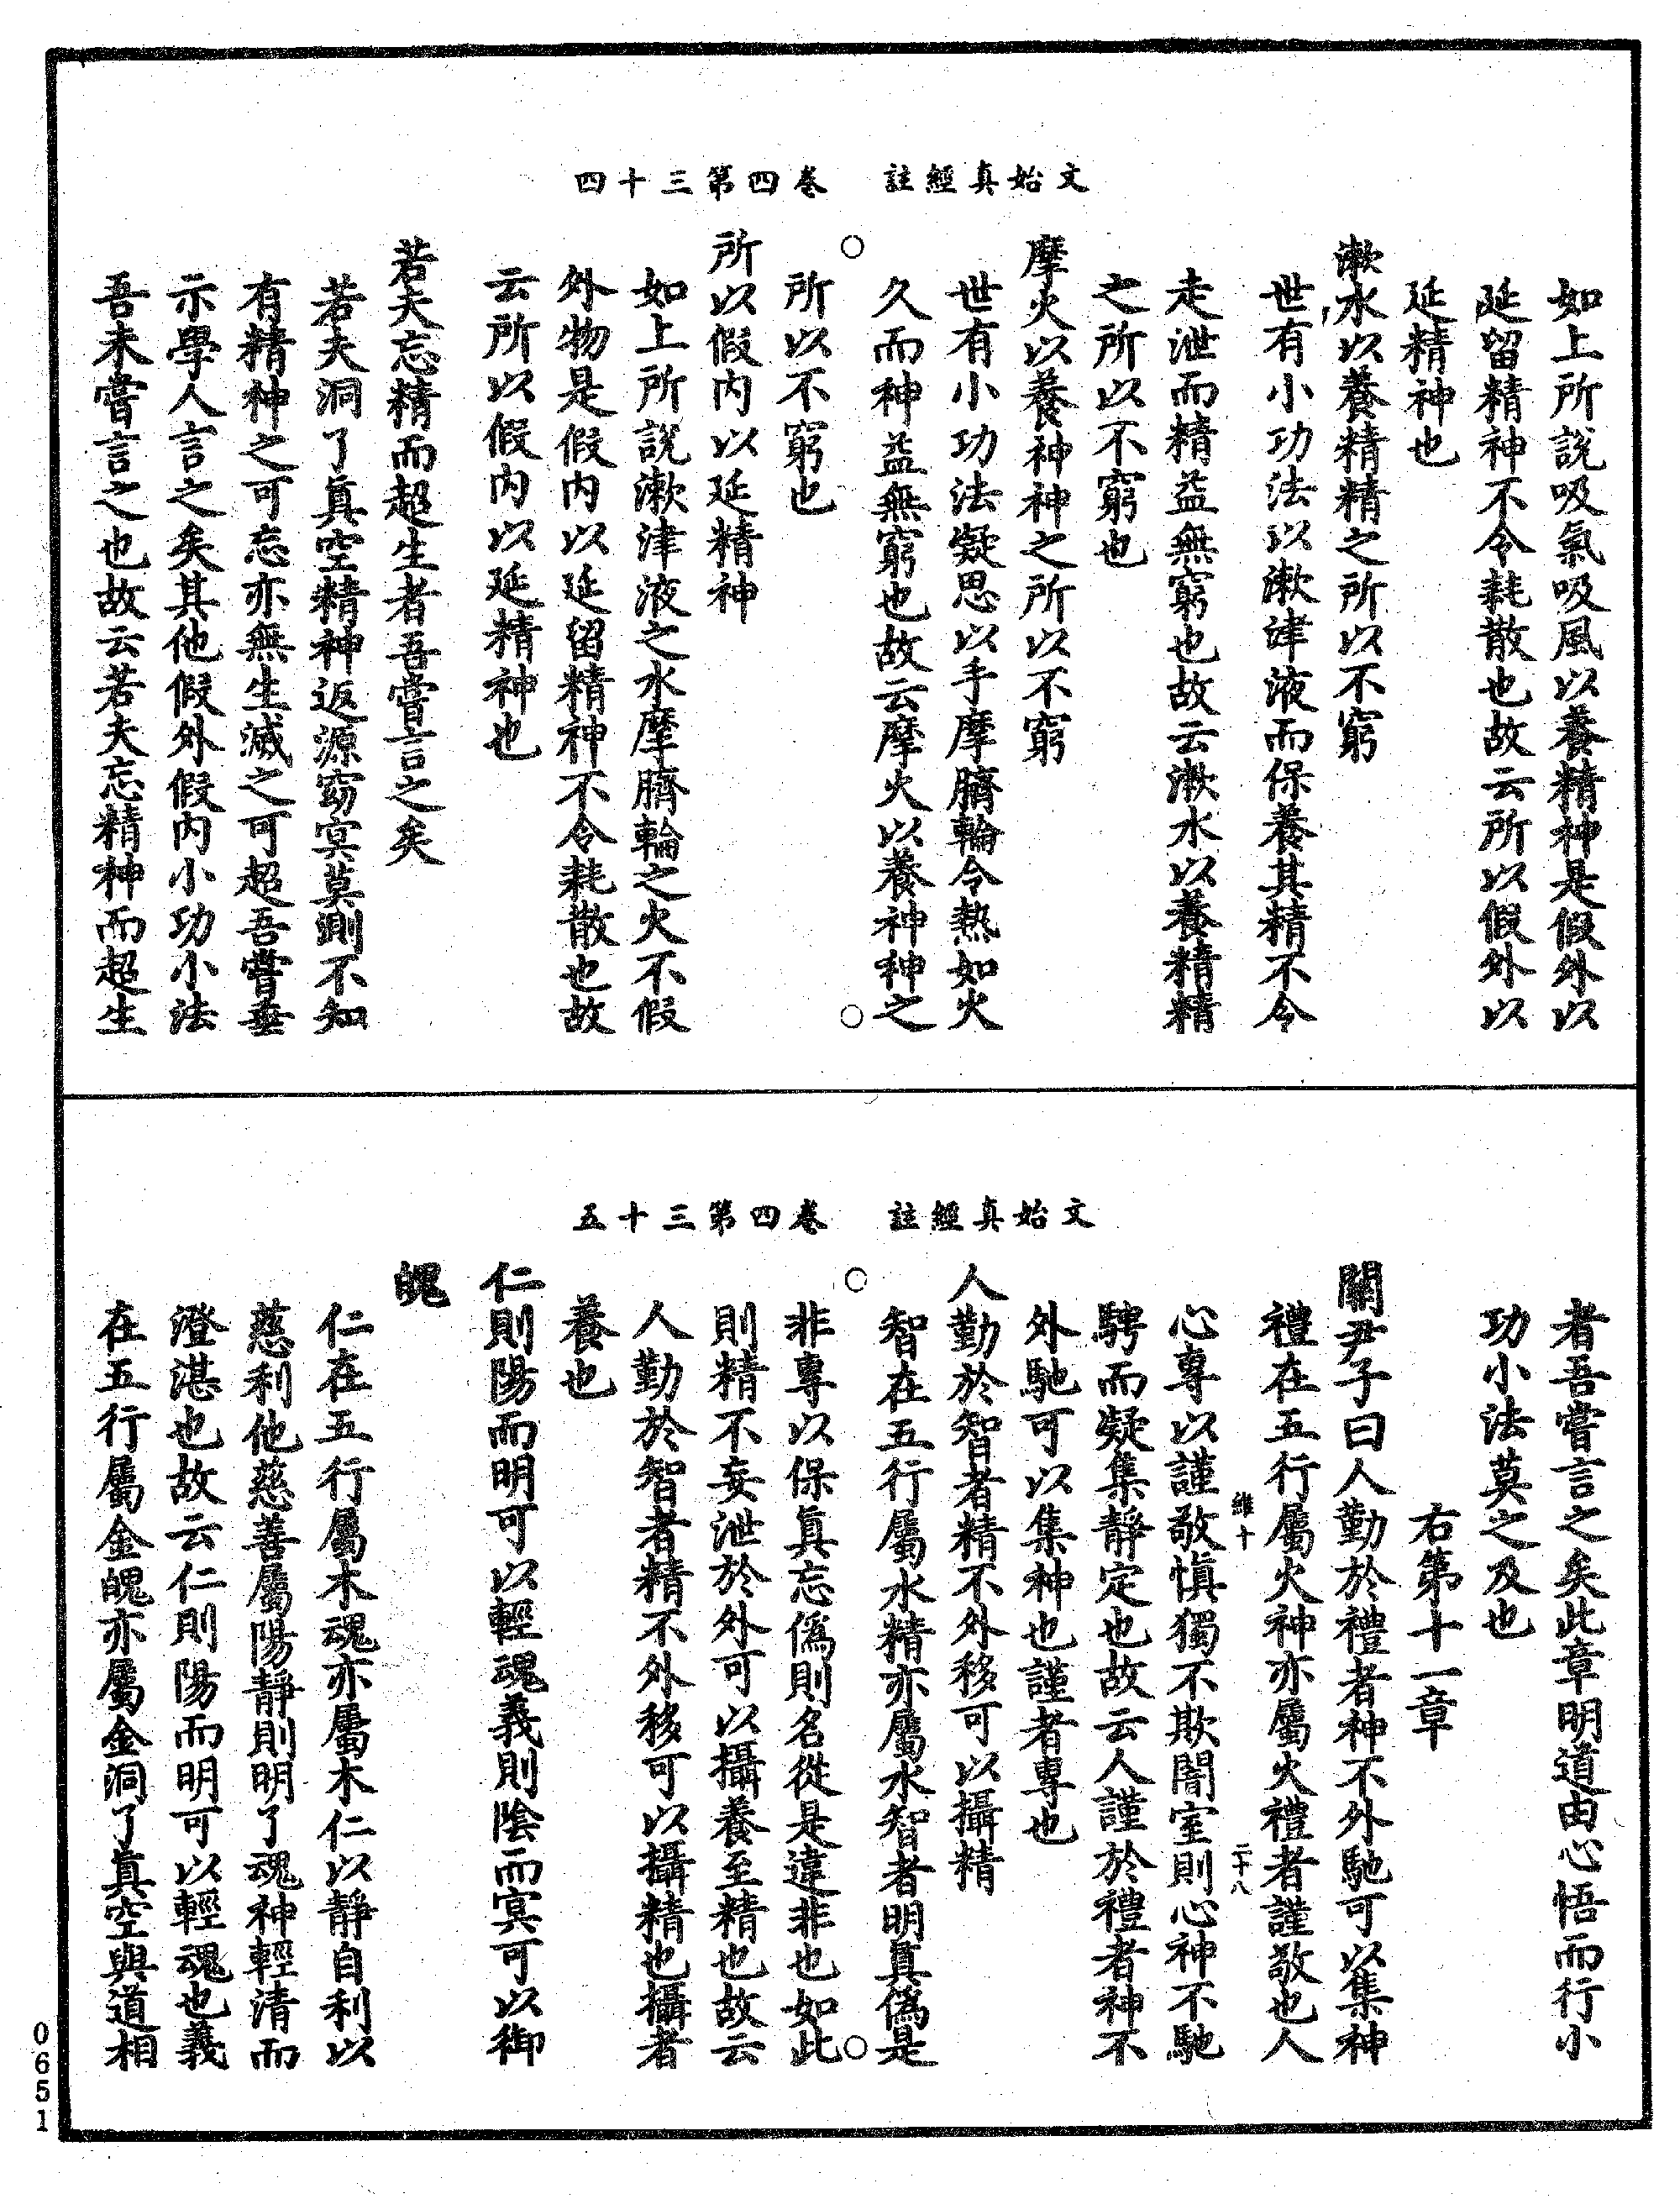 文始真經註　卷四第三十四
如上所說吸氣吸風以養精神是假外以
延留精神不令耗散也故云所以假外以
延精神也
漱水以養精精之所以不窮
世有小功法以漱津液而保養其精不令
走泄而精益無窮也故云漱水以養精精
之所以不窮也
摩火以養神神之所以不窮
世有小功法凝思以手摩臍輪令熱如火
久而神益無窮也故云摩火以養神神之
所以不窮也
所以假內以延精神
如上所說漱津液之水摩臍輪之火不假
外物是假內以延留精神不令耗散也故
云所以假內以延精神也
若夫忘精而超生者吾嘗言之矣
若夫洞了真空精神返源窈冥莫測不知
有精神之可忘亦無生滅之可超吾嘗垂
示學人言之矣其他假外假內小功小法
吾未嘗言之也故云若夫忘精神而超生
文始真經註　卷四第三十五
者吾嘗言之矣此章明道由心悟而行小
功小法莫之及也
右第十一章
關尹子曰人勤於禮者神不外馳可以集神
禮在五行屬火神亦屬火禮者謹敬也人
維十　二十八
心專以謹敬慎獨不欺闇室則心神不馳
騁而凝集靜定也故云人謹於禮者神不
外馳可以集神也謹者專也
人勤於智者精不外移可以攝精
智在五行屬水精亦屬水智者明真偽是
非專以保真忘偽則名從是違非也如此
則精不妄泄於外可以攝養至精也故云
人勤於智者精不外移可以攝精也攝者
養也
仁則陽而明可以輕魂義則陰而冥可以御
魄
仁在五行屬木魂亦屬木仁以靜自利以
慈利他慈善屬陽靜則明了魂神輕清而
澄湛也故云仁則陽而明可以輕魂也義
在五行屬金魄亦屬金洞了真空與道相
0651